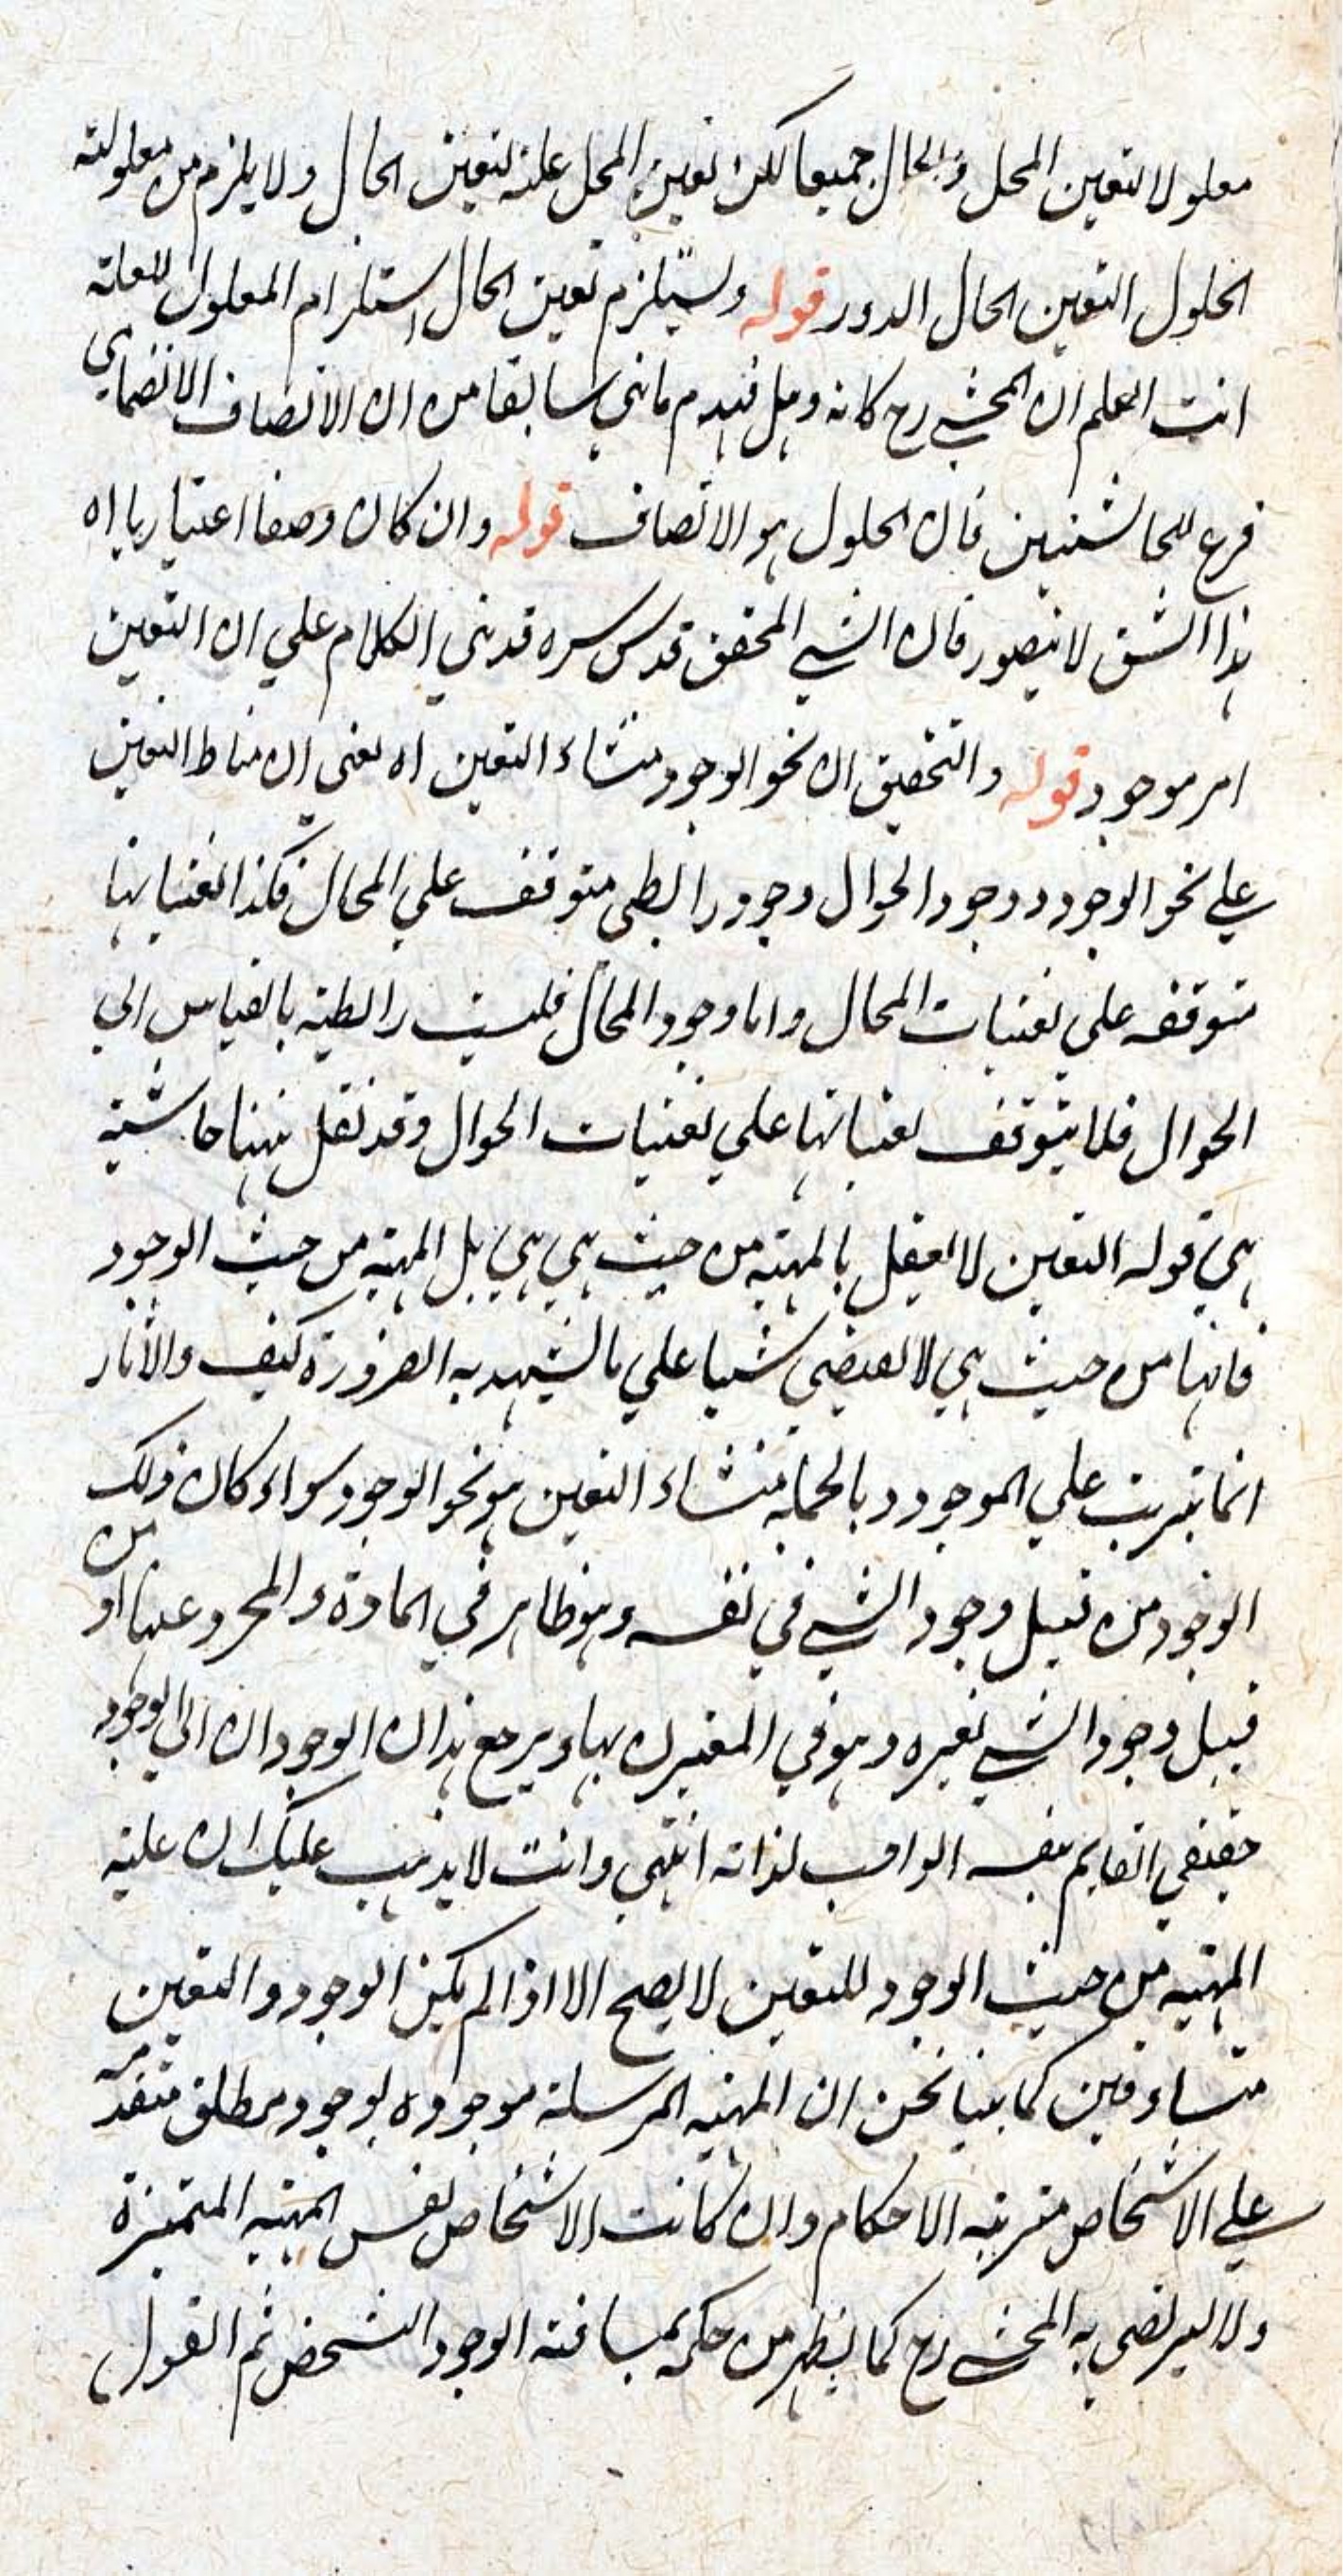 معلولا لتعين المحل والحال جميعا لكن تعين المحل علة لتعين الحال ولا يلزم من معلولية
الحلول التعين الحال الدور قوله ويستلزم تعين الحال استلزام المعلول للعلة
انت اعلم ان المحشي رح كانه ما نبي سابقا من ان الاتصاف الانضمامي
فرع للحاشيتين فان الحلول هو الاتصاف قوله وان كان وصفا اعتباريا اه
هذا الشق لا يتصور فان الشي المحقق قدس سره قد بني الكلام علي ان التعين
امر موجود قوله والتحقيق ان نحو الوجود منشاء التعين اه يعني ان مناط التعين
علي نحو الوجود ووجود الحوال وجود رابطي متوقف علي المحال فكذا تعيناتها
متوقفه علي تعينات المحال واما وجود المحال فليست رابطية بالقياس الي
الحوال فلا يتوقف تعيناتها علي تعينات الحوال وقد نقل ههنا حاشية
هي قوله التعين لا يعقل بالمهية من حيث هي هي بل المهية من حيث الوجود
فانها من حيث هي لا يقتضي شيا علي ما يشهد به الضرورة كيف والاثار
انما يترتب علي الموجود وبالجملة منشاء التعين هو نحو الوجود سواء كان ذلك
الوجود من قبيل وجود الشي في نفسه وهو ظاهر في المادة والمجرد عنها او من
قبيل وجود الشي لغيره وهو في المقترن بها ويرجع هذان الوجودان الي الوجود
حقيقي القايم بنفسه الواجب لذاته انتهي وانت لا يذهب عليك ان علية
المهية من حيث الوجود للتعين لا يصح الا اذا لم يكن الوجود والتعين
متساوقين كما بينا نحن ان المهية المرسلة موجوده بوجود مطلق متقدمه
علي الاشخاص مترتبه الاحكام وان كانت الاشخاص نفس المهيه المتميزة
ولا يرتضي به المحشي رح كما يظهر من حكمه بمساوقته الوجود التشخص ثم القول